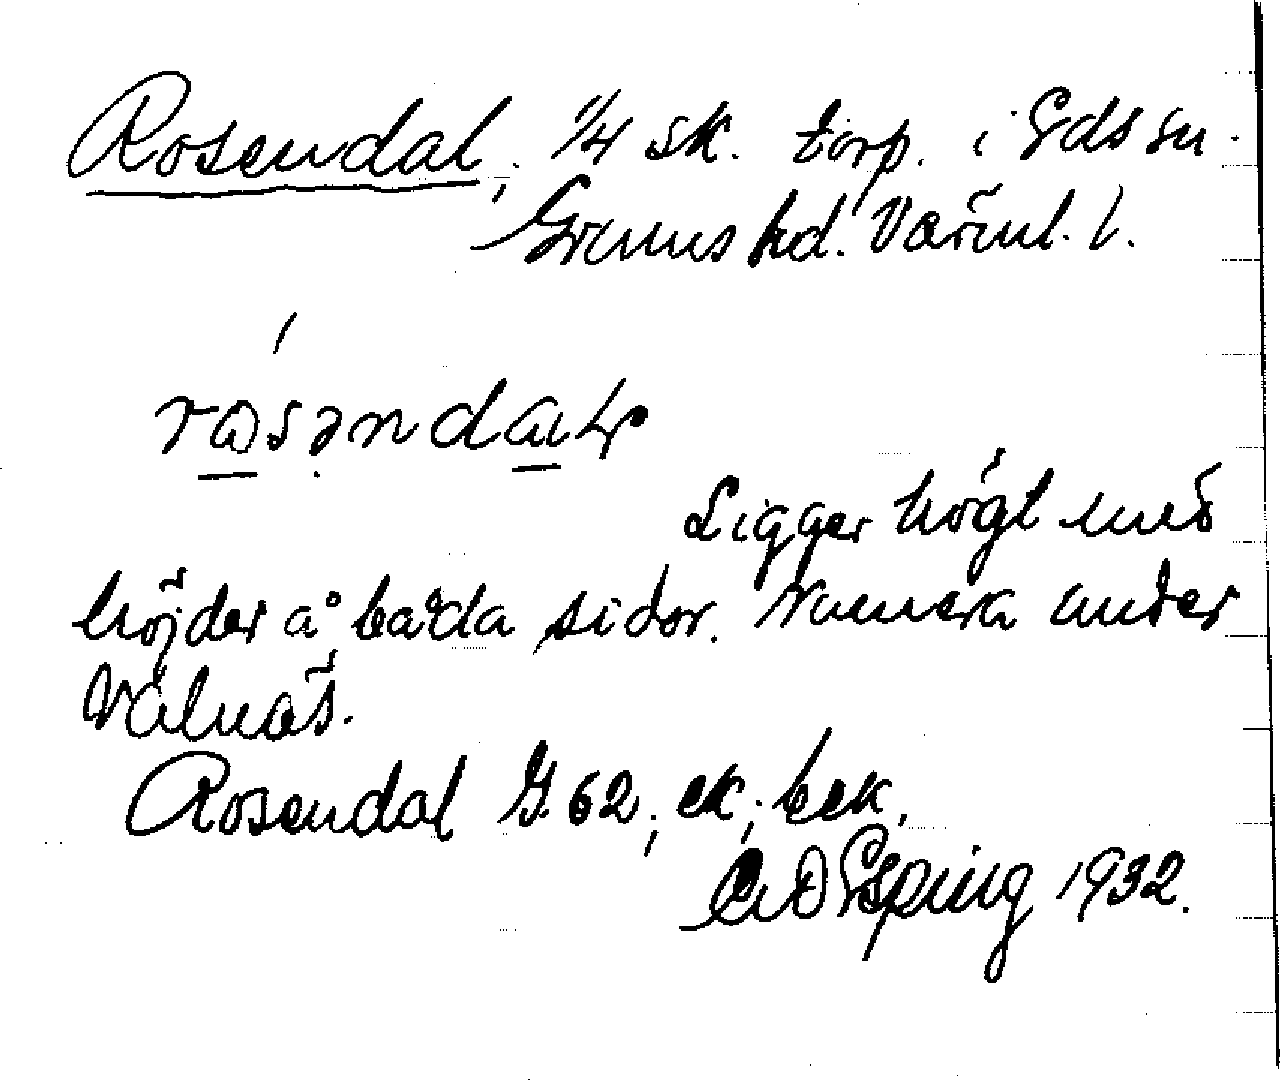 Rosendal, 1/4 sk. torp. i Eds sn.
Grums hd. Värml. l.
Ligger högt med
höjder å båda sidor. Numera under
Välnäs.
Rosendal G. 62, ek, bek,
C O Esping 1932.